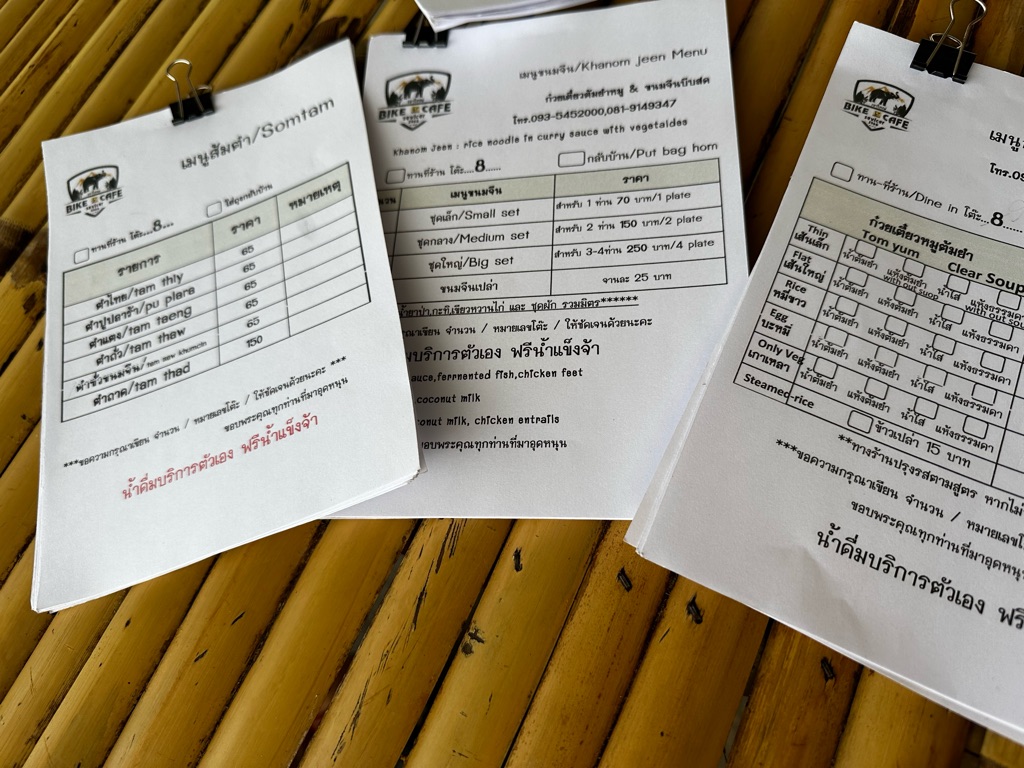 BIKE CAFE
เมนูส้มตำ/Somtam
ทานที่ร้าน โต๊ะ...8....
ใส่ถุงกลับบ้าน
รายการ ราคา หมายเหตุ
ตำไทย/tam thiy 65
ตำปูปลาร้า/pu plara 65
ตำแตง/tam taeng 65
ตำถั่ว/tam thaw 65
ตำซั่วขนมจีน/ 65
ตำถาด/tam thad 150
***ขอความกรุณาเขียน จำนวน / หมายเลขโต๊ะ / ให้ชัดเจนด้วยนะคะ ***
ขอบพระคุณทุกท่านที่มาอุดหนุน
น้ำดื่มบริการตัวเอง ฟรีน้ำแข็งจ้า
BIKE CAFE
เมนูขนมจีน/Khanom jeen Menu
ก๋วยเตี๋ยวต้มยำหมู & ขนมจีนบีบสด
โทร.093-5452000,081-9149347
Khanom Jeen : rice noodle in curry sauce with vegetaldes
ทานที่ร้าน โต๊ะ....8......
กลับบ้าน/Put bag hom
เมนูขนมจีน ราคา
ชุดเล็ก/Small set สำหรับ 1 ท่าน 70 บาท/1 plate
ชุดกลาง/Medium set สำหรับ 2 ท่าน 150 บาท/2 plate
ชุดใหญ่/Big set สำหรับ 3-4ท่าน 250 บาท/4 plate
ขนมจีนเปล่า จานละ 25 บาท
น้ำยาป่า,กะทิ,เขียวหวานไก่ และ ชุดผัก รวมมิตร******
กรุณาเขียน จำนวน / หมายเลขโต๊ะ / ให้ชัดเจนด้วยนะคะ
มบริการตัวเอง ฟรีน้ำแข็งจ้า
auce,ferrmented fish,chicken feet
coconut milk
onut milk, chicken entrails
ขอบพระคุณทุกท่านที่มาอุดหนุน
BIKE CAFE
เมนู
โทร.09
ทาน-ที่ร้าน/Dine in โต๊ะ...8
ก๋วยเตี๋ยวหมูต้มยำ
Tom yum Clear Soup
Thin เส้นเล็ก น้ำต้มยำ แห้งต้มยำ without soup น้ำใส แห้งธรรมดา without sou
Flat เส้นใหญ่ น้ำต้มยำ แห้งต้มยำ น้ำใส แห้งธรรมดา
Rice หมี่ขาว น้ำต้มยำ แห้งต้มยำ น้ำใส แห้งธรรมดา
Egg บะหมี่ น้ำต้มยำ แห้งต้มยำ น้ำใส แห้งธรรมดา
Only Veg เกาเหลา น้ำต้มยำ แห้งต้มยำ น้ำใส แห้งธรรมดา
Steamed-rice ข้าวเปล่า 15 บาท
**ทางร้านปรุงรสตามสูตร หากไม่
***ขอความกรุณาเขียน จำนวน / หมายเล
ขอบพระคุณทุกท่านที่มาอุดหนุ
น้ำดื่มบริการตัวเอง ฟรี